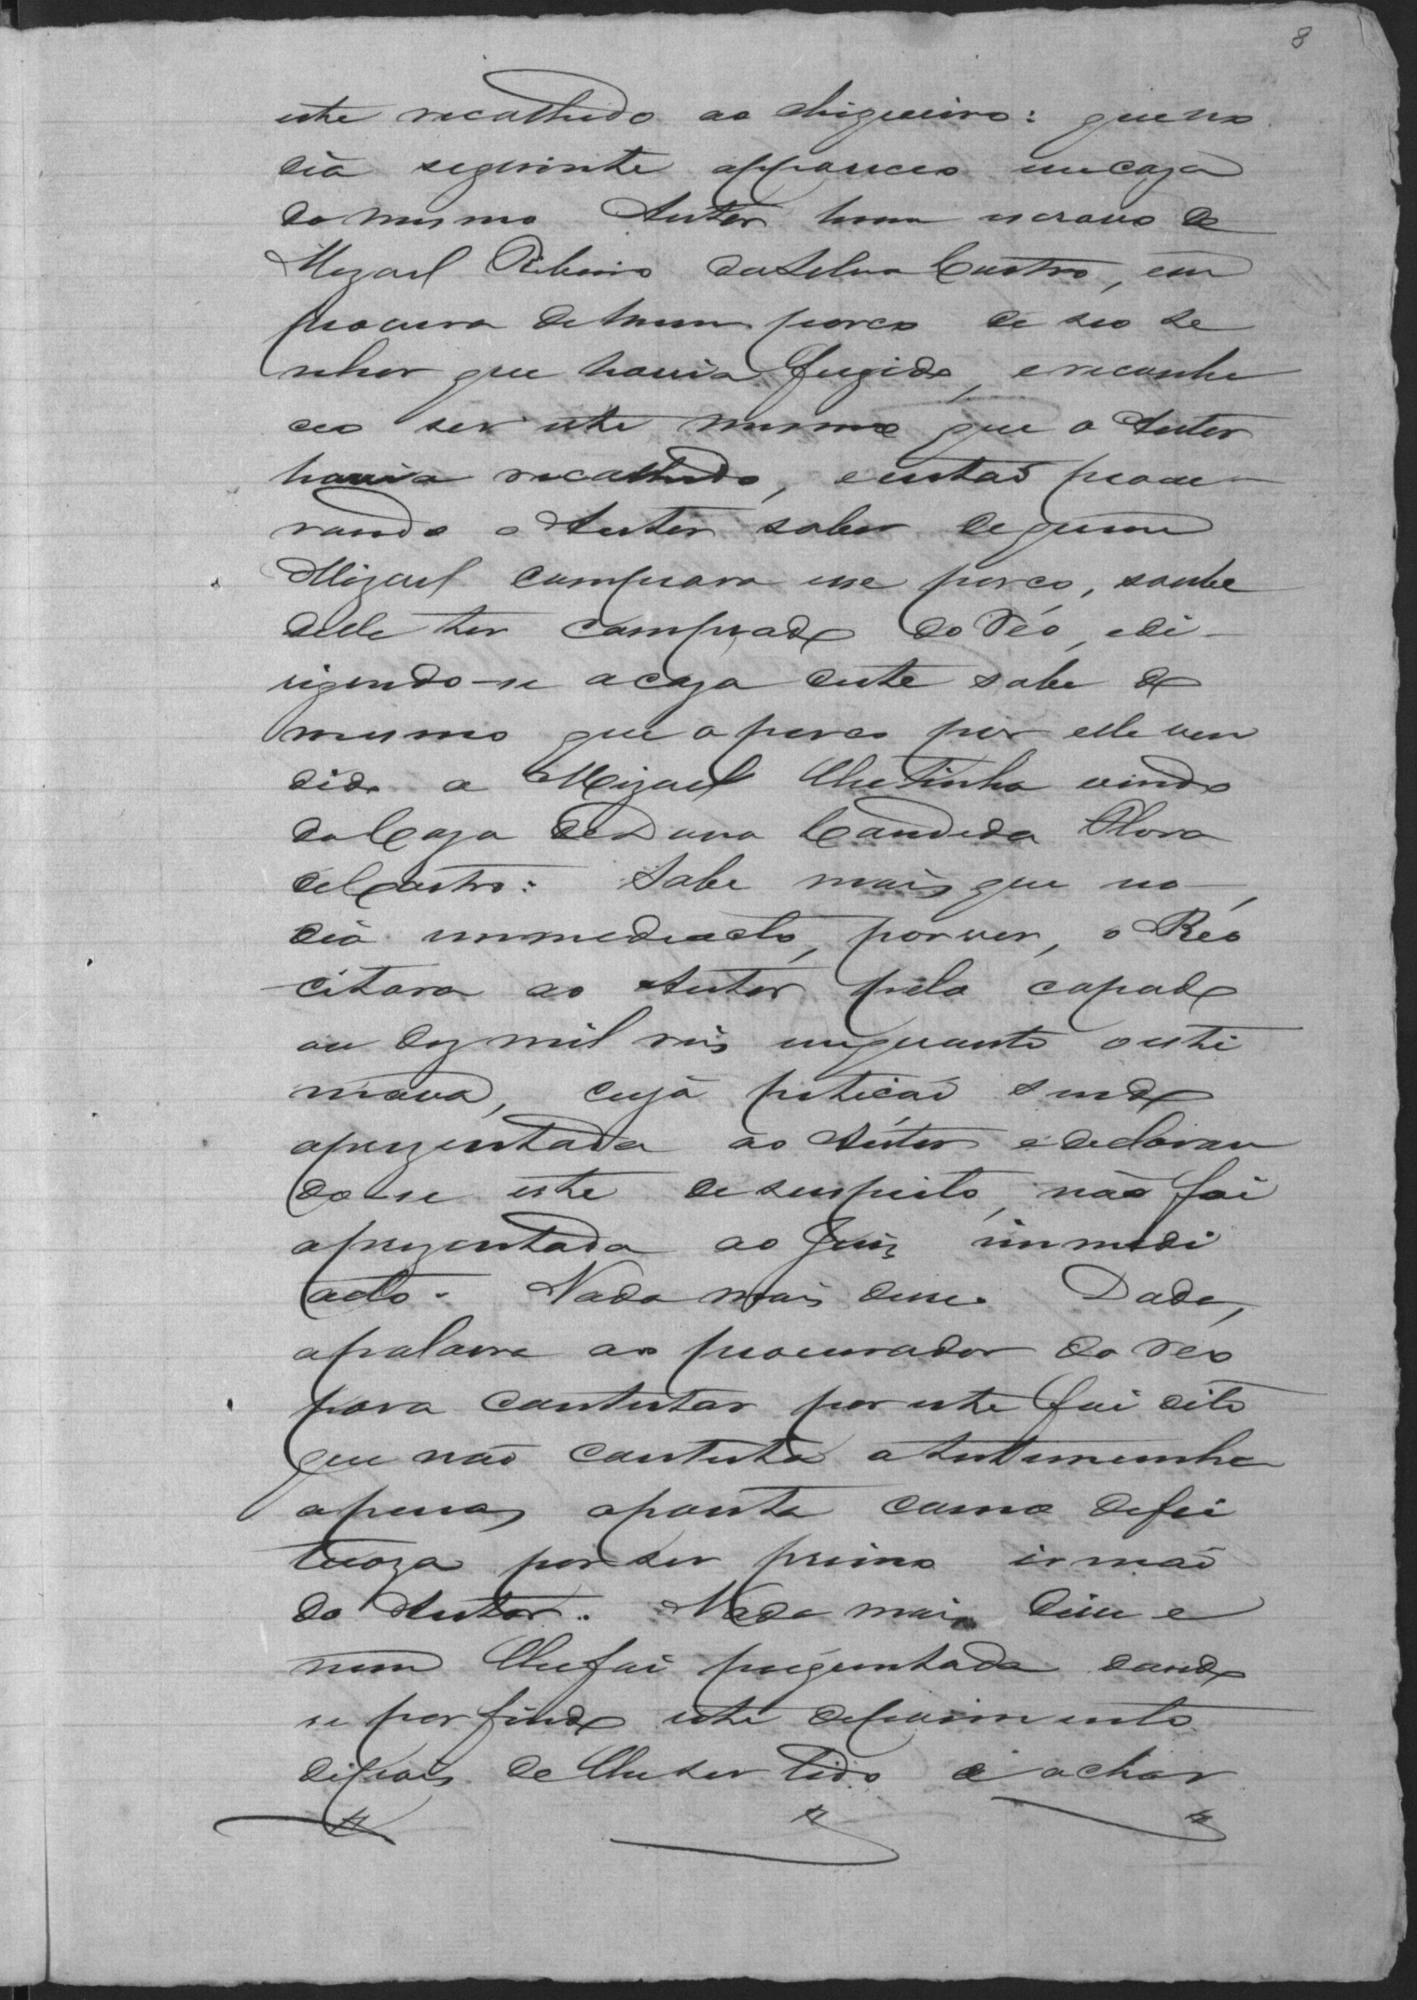 8
este recolhido ao chiqueiro: que no
dia seguinte appareceo em caza
do mesmo Autor hum escravo de
Mizael Ribeiro da Silva Castro, em
procura de hum porco de seo se
nhor que havia fugido, e reconhe
ceo ser este mesmo que o Autor
havia recolhido, e entaõ procu-
rando o Autor saber de quem
Mizael comprara esse porco, soube
delle ter comprado do Réo, e di-
rigindo-se a caza deste sabe do
mesmo que o porco por elle ven
dido a Mizael lhe tinha vindo
da Caza de Dona Candida Flora
de Castro: Sabe mais que no
dia immediacto, por ver, o Réo
citara ao Autor pelo capado
ou dez mil reis em quanto o esti
mava, cuja petição sendo
aprezentada ao Autor e declaran
do-se este de suspeito, não foi
aprezentada ao Juiz immedi
acto. Nada mais disse. Dada
a palavra ao procurador do reo
para contestar por este foi dito
que não contesta a testemunha
apenas aponta como defei
tuoza por ser primo irmaõ
do Autor. Nada mais disse e
nem lhe foi preguntada dando
se por findo este depoimento
depois de lhe ser lido e achar